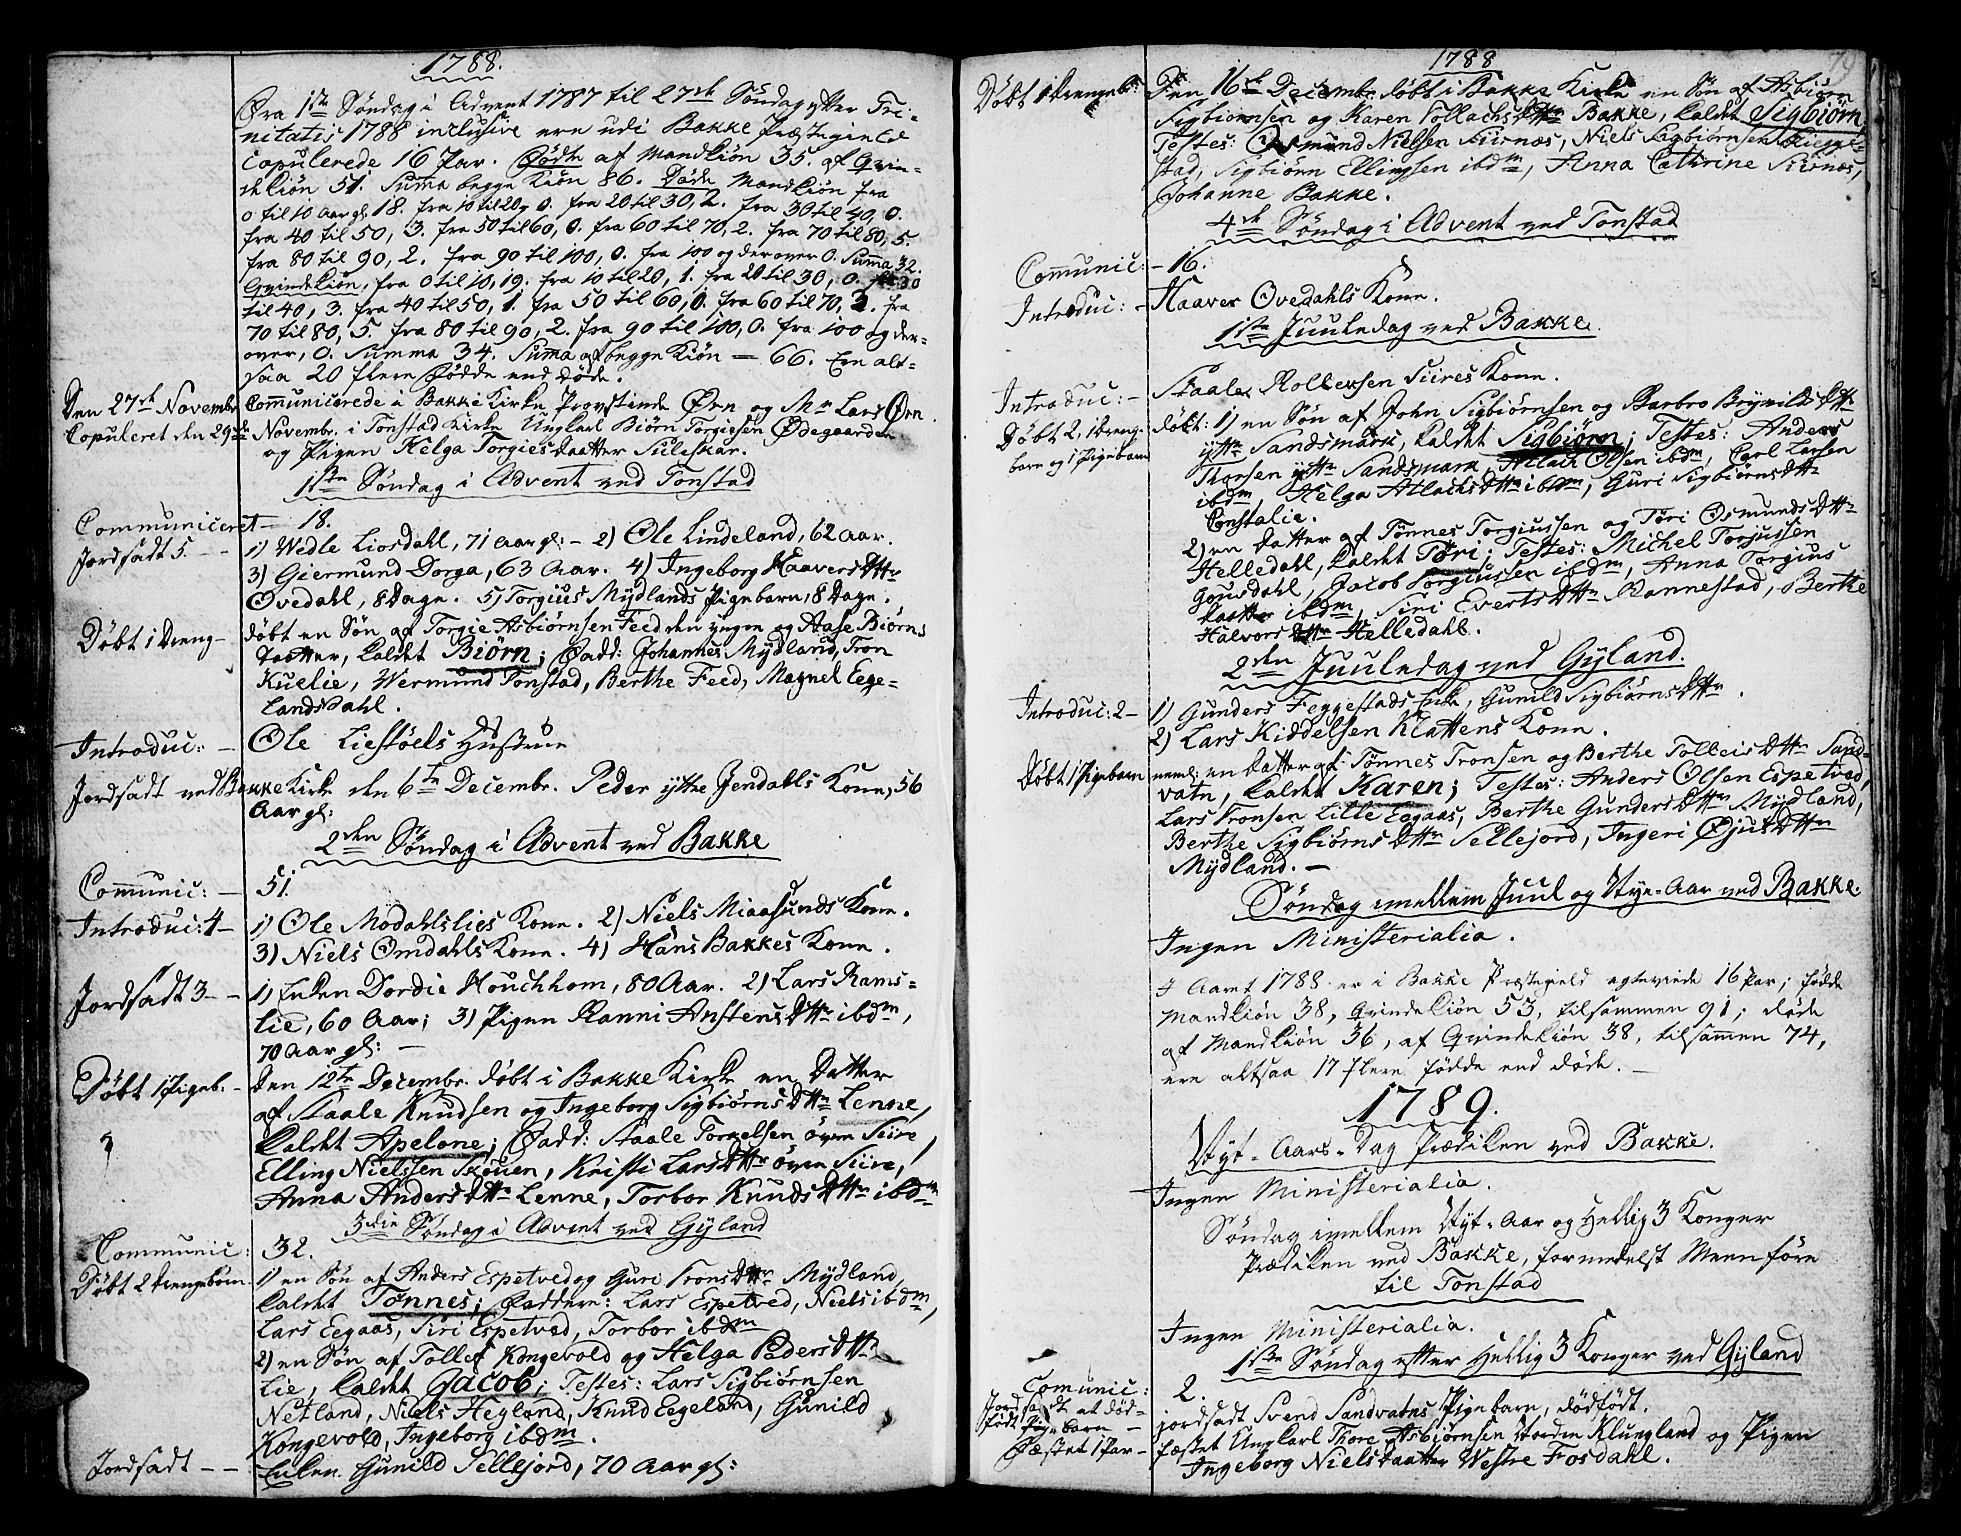 1788.
Fra 1ste Søndag i Advent 1787 til 27de Søndag efter Tri-
nitatis 1788 inclusive ere udi Bakke Præstegield
Copulerede 16 Par. Fødte af Mandkiøn 35. af Qvin-
dekiøn 51. Summa begge Kiøn 86. Døde Mandkiøn fra
0 til 10 Aar gl. 18. fra 10 til 20, 0. fra 20 til 30, 2. fra 30 til 40, 0.
fra 40 til 50, 3. fra 50 til 60, 0. fra 60 til 70, 2. fra 70 til 80, 5.
fra 80 til 90, 2. fra 90 til 100, 0. fra 100 og derover 0. Summa 32.
Qvindekiøn, fra 0 til 10, 19. fra 10 til 20, 1. fra 20 til 30, 0. fra 30
til 40, 3. fra 40 til 50, 1. fra 50 til 60, 0. fra 60 til 70, 3. fra
70 til 80, 5 fra 80 til 90, 2. fra 90 til 100, 0. fra 100 og der-
over, 0. Summa 34. Suma af begge Kiøn — 66. Ere alt-
saa 20 flere Fødde end døde.
Den 27de Novembr Communicerede i Bakke Kirke Provstinde Ørn og Mr Lars Ørn.
Copuleret den 29de Novembr. i Tonstad Kirke Ungkarl Biørn Torgiesen Ødegaarden
og Pigen Helga Torgiesdaatter Suleskar.
1ste Søndag i Advent ved Tonstad
Communiceret — 18.
Jordfæstet 5 — 1) Wedle Liosdahl, 71 Aar gl: — 2) Ole Lindeland, 62 Aar.
3) Giermund Dorga, 63 Aar. 4) Ingeborg HaaversDttr
Ovedahl, 8 Dage. 5) Torgius Mydlands Pigebarn, 8 Dage.
Døbt 1 Dreng — døbt en Søn af Torgie Asbiørnsen Feed den yngre og Aase Biørns
Datter, kaldet Biørn; Fadd: Johannes Mydland, Tron
Kuelie, Wermund Tonstad, Berthe Feed, Magnel Eege-
landsdahl.
Introduc: — Ole Liestøels Hustrue
Jordfæstet ved Bakke Kirke den 6te Decembr. Peder ytre Jendahls Kone, 56
Aar gl:
2den Søndag i Advent ved Bakke
Communic: — 51.
Introduc: 4 — 1) Ole Modahlslies Kone. 2) Niels Miaasunds Kone.
3) Niels Omdahls Kone. 4) Hans Bakkes Kone.
Jordfæstet 3 — 1) Enken Dordie Houchhom, 80 Aar. 2) Lars Rams-
lie, 60 Aar; 3) Pigen Ranni AnstensDttr ibdm,
70 Aar gl: —
Døbt 1 Pigeb. — den 12te Decembr. døbt i Bakke Kirke en Datter
af Staale Knudsen og Ingeborg SigbiørnsDttr Lenne,
kaldet Apelone; Fadd: Staale Torkelsen øvre Siire,
Elling Nielssen Skouen, Kristi LarsDttr øvre Siire,
Anna AndersDttr Lenne, Torbor KnudsDttr ibdm
3die Søndag i Advent ved Gyland
Communic: 32.
Døbt 2 Drengebørn 1) en Søn af Anders Espetved og Guri TronsDttr Mydland,
kaldet Tønnes; Faddere: Lars Espetved, Niels ibdm,
Lars Eegaas, Siri Espetved, Torbor ibdm
2) en Søn af Tollef Kongevold og Helga PedersDttr
Lie, kaldet Jacob; Testes: Lars Sigbiørnsen
Netland, Niels Hegland, Knud Eegeland, Gunild
Kongevold, Ingeborg ibdm.
Jordfæstet — Enken Gunild Sellejord, 70 Aar gl:
1788
79
Døbt 1 drengeb: Den 16de Decembr. døbt i Bakke Kirke en Søn af Asbiørn
Sigbiørnsen og Karen TollachsDttr Bakke, kaldet Sigbiørn,
Testes: Osmund Nielsen Siirnæs, Niels Sigbiørnsen
stad, Sigbiørn Ellingsen ibdm, Anna Cathrine Siirnæs,
Johanne Bakke.
4de Søndag i Advent ved Tonstad
Communic: — 16.
Introduc: — Haaver Ovedahls Kone.
1ste Juuledag ved Bakke.
Introduc: — Staale Rolbersen Siires Kone.
Døbt 2, 1 Drenge-
barn og 1 Pigebarn
døbt: 1) en Søn af John Sigbiørnsen og Barbro BryniildsDttr
ytre Sandsmark, kaldet Sigbiørn; Testes: Anders
Thorsen ytre Sandsmark, Atlach Olsen ibdm, Carl Larsen
ibdm, Helga AtlachsDttr ibdm, Guri SigbiørnsDttr
Constalie.
2) en datter af Tønnes Torgiussen og Tøri OsmundsDttr
Helledahl, kaldet Tøri; Testes: Michel Torjussen
Gousdahl, Jacob Torgiussen ibdm, Anna Torgius
Datter ibdm, Siri EvertsDttr Rannestad, Berthe
HalvorsDttr Helledahl.
2den Juuledag ved Gyland.
Introduc: 2 — 1) Gunders Feggestads Enke, Gunild SigbiørnsDttr.
2) Lars Kiddelsen Klattens Kone.
Døbt 1 Pigebarn nemlig en datter af Tønnes Tronsen og Berthe TolleisDttr Sand-
vatn, kaldet Karen; Testes: Anders Olsen Espetved,
Lars Tronsen Lille Eegaas, Berthe GundersDttr Mydland,
Berthe SigbiørnsDttr Sellejord, Ingeri ØjusDttr
Mydland. —
Søndag imellem Juul og Nye-Aar ved Bakke.
Ingen Ministerialia.
I Aaret 1788 er i Bakke Præstegield egteviede 16 Par; fødde
Mandkiøn 38, Qvindekiøn 53, tilsammen 91; døde
af Mandkiøn 36, af Qvindekiøn 38, tilsammen 74,
ere altsaa 17 flere fødde end døde. —
1789.
Nyt-Aars-Dag Prædiken ved Bakke.
Ingen Ministerialia.
Søndag imellem Nyt-Aar og Hellig 3 Konger
Prædiken ved Bakke, formedelst Meenføre
til Tonstad
Ingen Ministerialia.
1ste Søndag efter Hellig 3 Konger ved Gyland
Comunic: 2.
Jordfæstet et død-
født Pigebarn — jordfæstet Svend Sandvatns Pigebarn, dødfødt.
Fæstet 1 Par — fæstet Ungkarl Thore Asbiørnsen Nordre Klungland og Pigen
Ingeborg Nielsdaatter Westre Fosdahl.